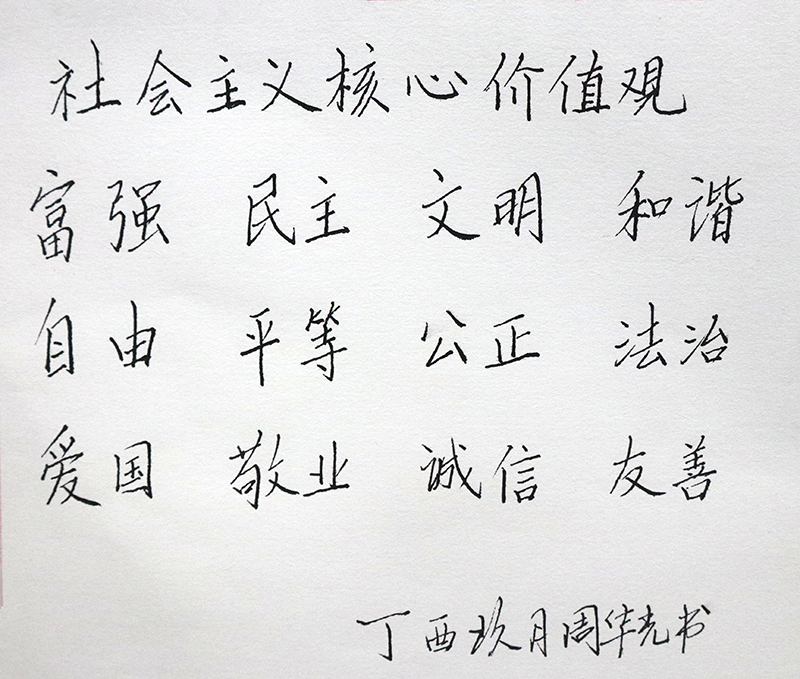 社会主义核心价值观
富强 民主 文明 和谐
自由 平等 公正 法治
爱国 敬业 诚信 友善
丁酉玖月周华光书